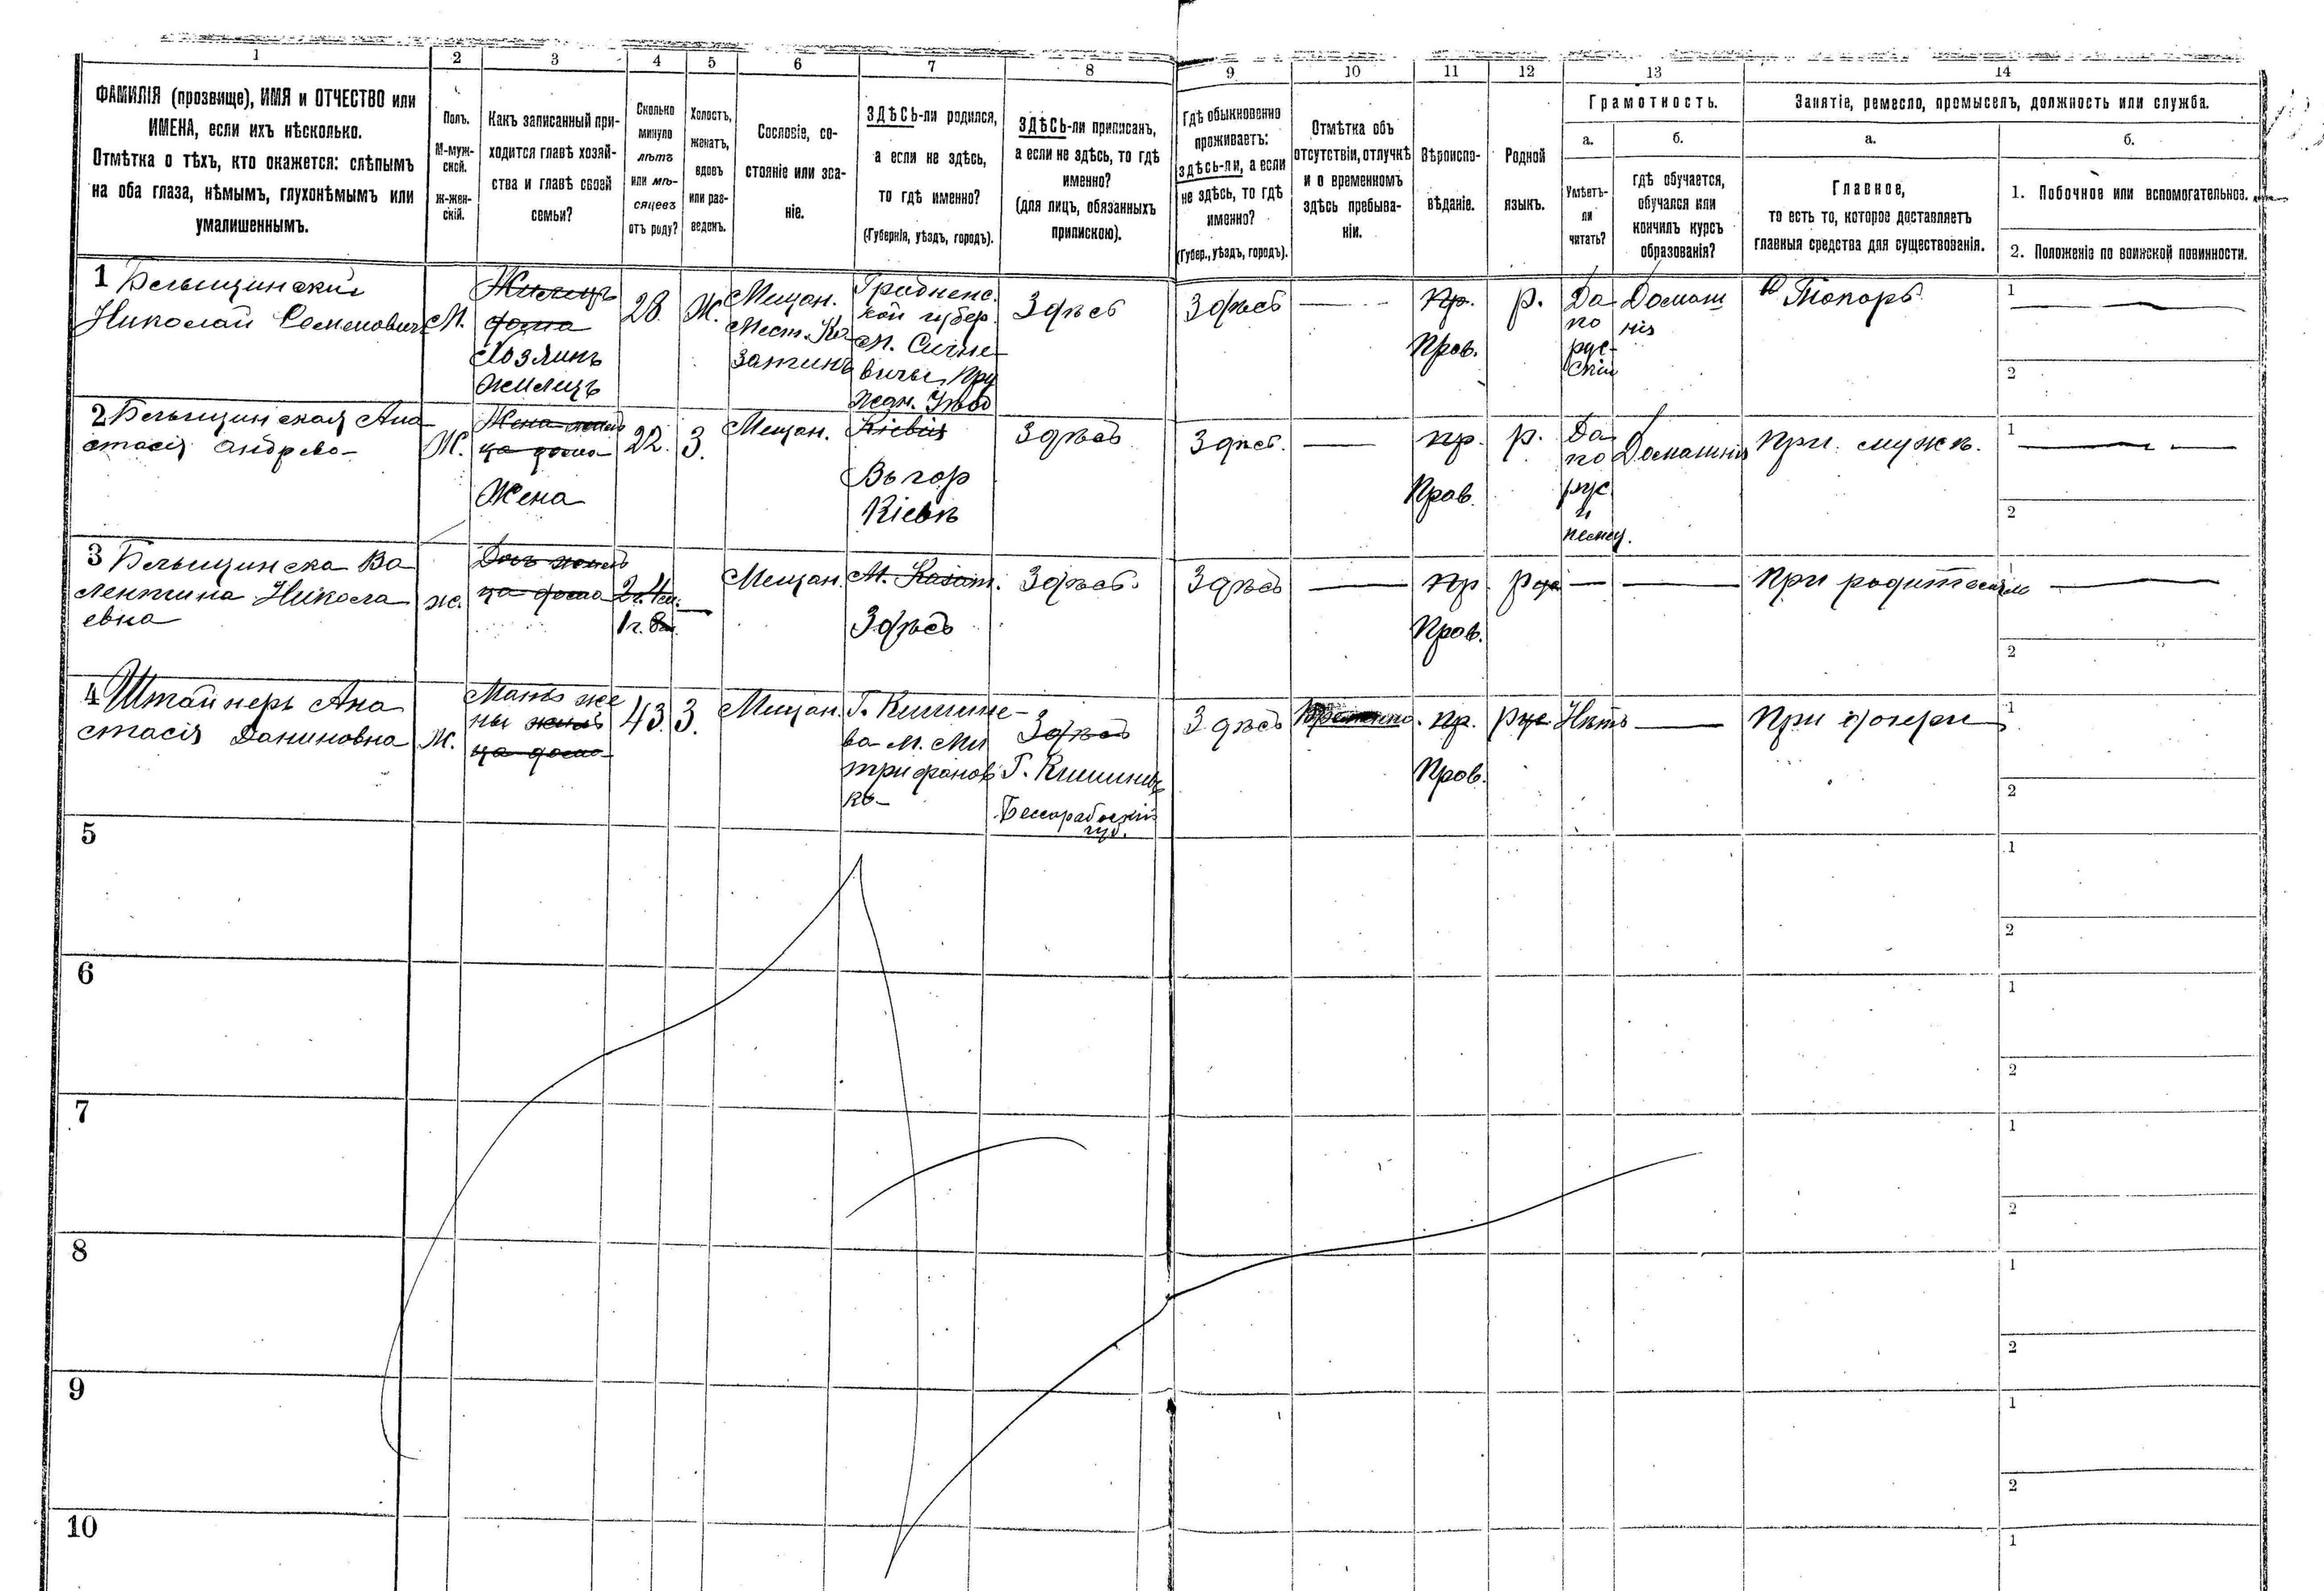 1
2
3
4
5
6
7
8
9
10
11
12
13
14
ФАМИЛІЯ (прозвище), ИМЯ и ОТЧЕСТВО или
ИМЕНА, если ихъ нѣсколько.
Отмѣтка о тѣхъ, кто окажется: слѣпымъ
на оба глаза, нѣмымъ, глухонѣмымъ или
умалишеннымъ.
Полъ.
М-муж-
ской.
ж-жен-
скій.
Какъ записанный при-
ходится главѣ хозяй-
ства и главѣ своей
семьи?
Сколько
минуло
лѣтъ
или мѣ-
сяцевъ
отъ роду?
Холостъ,
женатъ,
вдовъ
или раз-
веденъ.
Сословіе, со-
стояніе или зва-
ніе.
ЗДѢСЬ-ли родился,
а если не здѣсь,
то гдѣ именно?
(Губернія, уѣздъ, городъ).
ЗДѢСЬ-ли приписанъ,
а если не здѣсь, то гдѣ
именно?
(для лицъ, обязанныхъ
припискою).
Гдѣ обыкновенно
проживаетъ:
здѣсь-ли, а если
не здѣсь, то гдѣ
именно?
(Губер., уѣздъ, городъ).
Отмѣтка объ
отсутствіи, отлучкѣ
и о временномъ
здѣсь пребыва-
ніи.
Вѣроиспо-
вѣданіе.
Родной
языкъ.
Грамотность.
а.
Умѣетъ-
ли
читать?
б.
гдѣ обучается,
обучался или
кончилъ курсъ
образованія?
Занятіе, ремесло, промыселъ, должность или служба.
а.
Главное,
то есть то, которое доставляетъ
главныя средства для существованія.
б.
1. Побочное или вспомогательное.
2. Положеніе по воинской повинности.
1 Бельщинскій
Николай Семеновичъ
М.
Жилецъ
дома
Хозяинъ
жилецъ
28.
Ж.
Мещан.
Мест. Ка-
затинъ
Гродненс.
кой губер.
м. Сигне-
вичи, Пру
жан. Уѣзд
Здѣсь
Здѣсь
пр.
Прав.
р.
Да
по
рус-
скіи
Домаш
нія
Токоръ
1
2
2 Бельщинская Ана
стасія Андрево-
Ж.
Жена жиль
ца дома
Жена
22.
З.
Мещан.
Кіевѣ
Въ гор
Кіевѣ
Здѣсь
Здѣсь.
пр.
Прав.
р.
Да
по
рус
и
немец.
Домашнія
При мужѣ.
1
2
3 Бельщинска Ва
лентина Никола
евна
ж.
Дочь жиль
ца дома
2 г. 4 м.
1 г. 8 м.
Мещан.
М. Казат.
Здѣсь
Здѣсь.
Здѣсь
пр.
Прав.
рус
При родителяхъ
1
2
4 Штайнеръ Ана
стасія Даниловна
Ж.
Мать же
ны жиль
ца дома
43.
З.
Мещан.
Г. Кишине-
ва м. Ми
трифановъ
ка
Здѣсь
Г. Кишиневъ
Бессарабскій
губ.
Здѣсь
Временно.
пр.
Прав.
рус.
Нѣтъ
При дочери
1
2
5
1
2
6
1
2
7
1
2
8
1
2
9
1
2
10
1